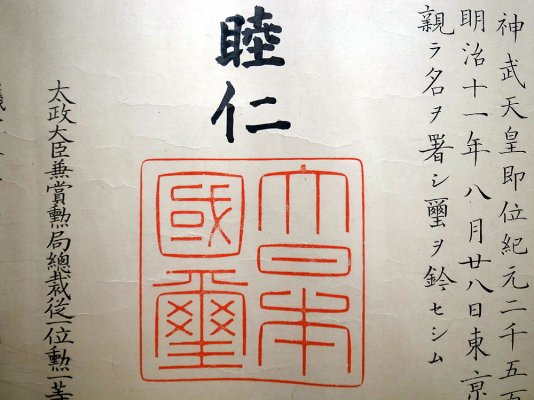 神武天皇即位紀元二千五百
明治十一年八月廿八日東京
親ラ名ヲ署シ璽ヲ鈐セシム
睦仁
大日本
國璽
太政大臣兼賞勲局總裁従一位勲一等